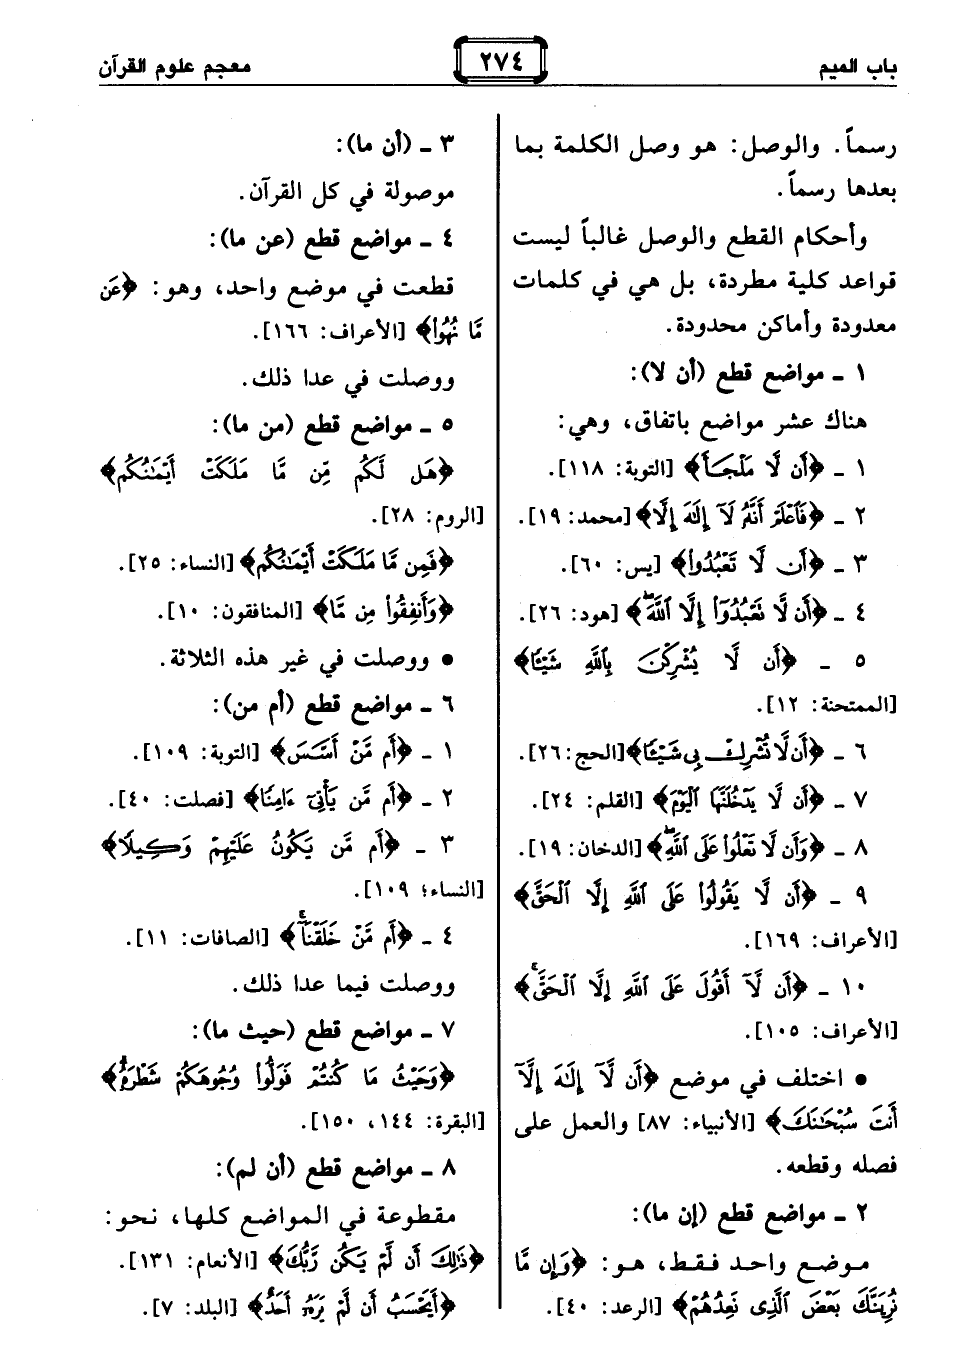 باب الميم
٢٧٤
معجم علوم القرآن
رسماً. والوصل: هو وصل الكلمة بما
بعدها رسماً.
وأحكام القطع والوصل غالباً ليست
قواعد كلية مطردة، بل هي في كلمات
معدودة وأماكن محدودة.
١ ـ مواضع قطع (أن لا):
هناك عشر مواضع باتفاق، وهي:
١ ـ ﴿أَن لَّا مَلْجَأَ﴾ [التوبة: ١١٨].
٢ ـ ﴿فَاعْلَمْ أَنَّهُ لَآ إِلَٰهَ إِلَّا﴾ [محمد: ١٩].
٣ ـ ﴿أَن لَّا تَعْبُدُوا﴾ [يس: ٦٠].
٤ ـ ﴿أَن لَّا نَعْبُدُوٓا إِلَّا ٱللَّهَ﴾ [هود: ٢٦].
٥ ـ ﴿أَن لَّا يُشْرِكْنَ بِٱللَّهِ شَيْـًٔا﴾
[الممتحنة: ١٢].
٦ ـ ﴿أَن لَّا تُشْرِكْ بِى شَيْـًٔا﴾ [الحج: ٢٦].
٧ ـ ﴿أَن لَّا يَدْخُلَنَّهَا ٱلْيَوْمَ﴾ [القلم: ٢٤].
٨ ـ ﴿وَأَن لَّا تَعْلُوا عَلَى ٱللَّهِ﴾ [الدخان: ١٩].
٩ ـ ﴿أَن لَّا يَقُولُوا عَلَى ٱللَّهِ إِلَّا ٱلْحَقَّ﴾
[الأعراف: ١٦٩].
١٠ ـ ﴿أَن لَّآ أَقُولَ عَلَى ٱللَّهِ إِلَّا ٱلْحَقَّ﴾
[الأعراف: ١٠٥].
● اختلف في موضع ﴿أَن لَّآ إِلَٰهَ إِلَّآ
أَنتَ سُبْحَٰنَكَ﴾ [الأنبياء: ٨٧] والعمل على
فصله وقطعه.
٢ ـ مواضع قطع (إن ما):
موضع واحد فقط، هو: ﴿وَإِن مَّا
نُرِيَنَّكَ بَعْضَ ٱلَّذِى نَعِدُهُمْ﴾ [الرعد: ٤٠].
٣ ـ (أن ما):
موصولة في كل القرآن.
٤ ـ مواضع قطع (عن ما):
قطعت في موضع واحد، وهو: ﴿عَن
مَّا نُهُوا﴾ [الأعراف: ١٦٦].
ووصلت في عدا ذلك.
٥ ـ مواضع قطع (من ما):
﴿هَل لَكُم مِّن مَّا مَلَكَتْ أَيْمَٰنُكُم﴾
[الروم: ٢٨].
﴿فَمِن مَّا مَلَكَتْ أَيْمَٰنُكُم﴾ [النساء: ٢٥].
﴿وَأَنفِقُوا مِن مَّا﴾ [المنافقون: ١٠].
● ووصلت في غير هذه الثلاثة.
٦ ـ مواضع قطع (أم من):
١ ـ ﴿أَم مَّنْ أَسَّسَ﴾ [التوبة: ١٠٩].
٢ ـ ﴿أَم مَّن يَأْتِىٓ ءَامِنًا﴾ [فصلت: ٤٠].
٣ ـ ﴿أَم مَّن يَكُونُ عَلَيْهِمْ وَكِيلًا﴾
[النساء؛ ١٠٩].
٤ ـ ﴿أَم مَّنْ خَلَقْنَآ﴾ [الصافات: ١١].
ووصلت فيما عدا ذلك.
٧ ـ مواضع قطع (حيث ما):
﴿وَحَيْثُ مَا كُنتُمْ فَوَلُّوا وُجُوهَكُمْ شَطْرَهُ﴾
[البقرة: ١٤٤، ١٥٠].
٨ ـ مواضع قطع (أن لم):
مقطوعة في المواضع كلها، نحو:
﴿ذَٰلِكَ أَن لَّمْ يَكُن رَّبُّكَ﴾ [الأنعام: ١٣١].
﴿أَيَحْسَبُ أَن لَّمْ يَرَهُۥ أَحَدٌ﴾ [البلد: ٧].